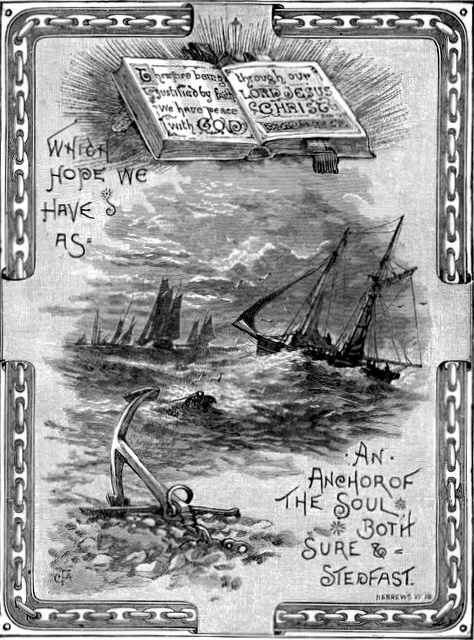 Therefore being
justified by faith
we have peace
with GOD
through our
LORD JESUS
CHRIST
WHICH
HOPE WE
HAVE
AS
AN
ANCHOR OF
THE SOUL,
BOTH
SURE &
STEDFAST.
HEBREWS VI 19